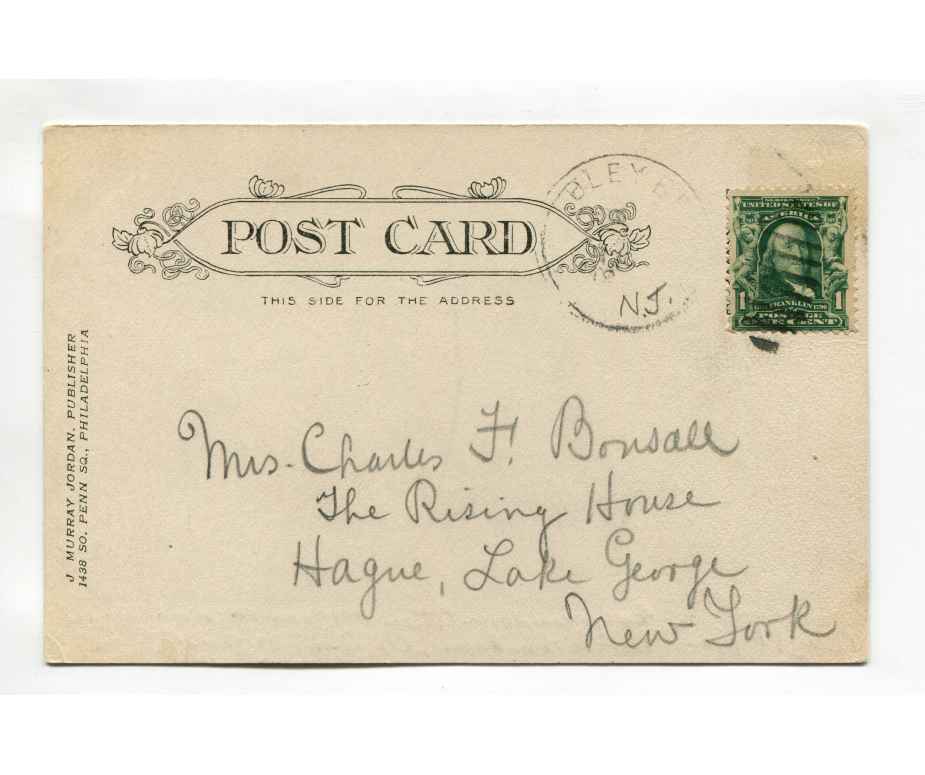 POST CARD
THIS SIDE FOR THE ADDRESS
N.J.
UNITED STATES OF
AMERICA
1 FRANKLIN 1
POSTAGE
ONE CENT
J. MURRAY JORDAN, PUBLISHER
1438 SO. PENN SQ., PHILADELPHIA
Mrs. Charles F. Bonsall
The Rising House
Hague, Lake George
New York